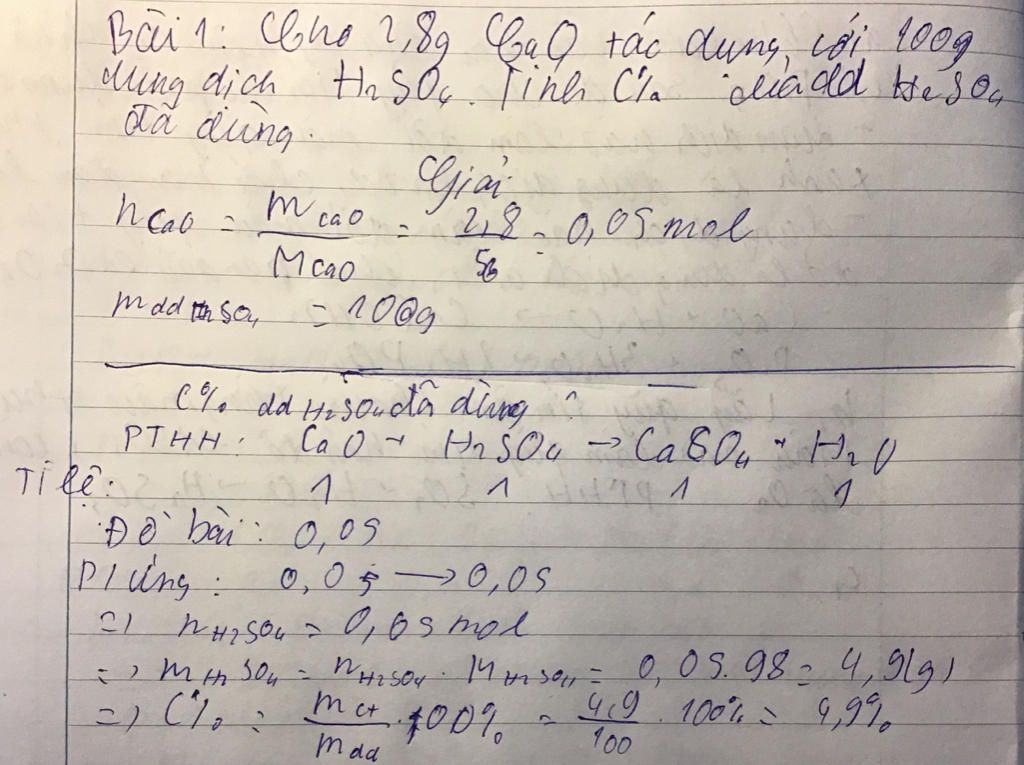 Bài 1: Cho 2,8g CaO tác dụng với 100g
dung dịch H2SO4. Tính C% của dd H2SO4
đã dùng.
Giải
nCaO = mCaO / MCaO = 2,8 / 56 = 0,05 mol
mddH2SO4 = 100g
C% dd H2SO4 đã dùng?
PTHH: CaO + H2SO4 → CaSO4 + H2O
Tỉ lệ: 1 1 1 1
Đề bài: 0,05
P/ứng: 0,05 → 0,05
=> nH2SO4 = 0,05 mol
=> mH2SO4 = nH2SO4 . MH2SO4 = 0,05.98 = 4,9(g)
=> C% = mct / mdd . 100% = 4,9 / 100 . 100% = 4,9%